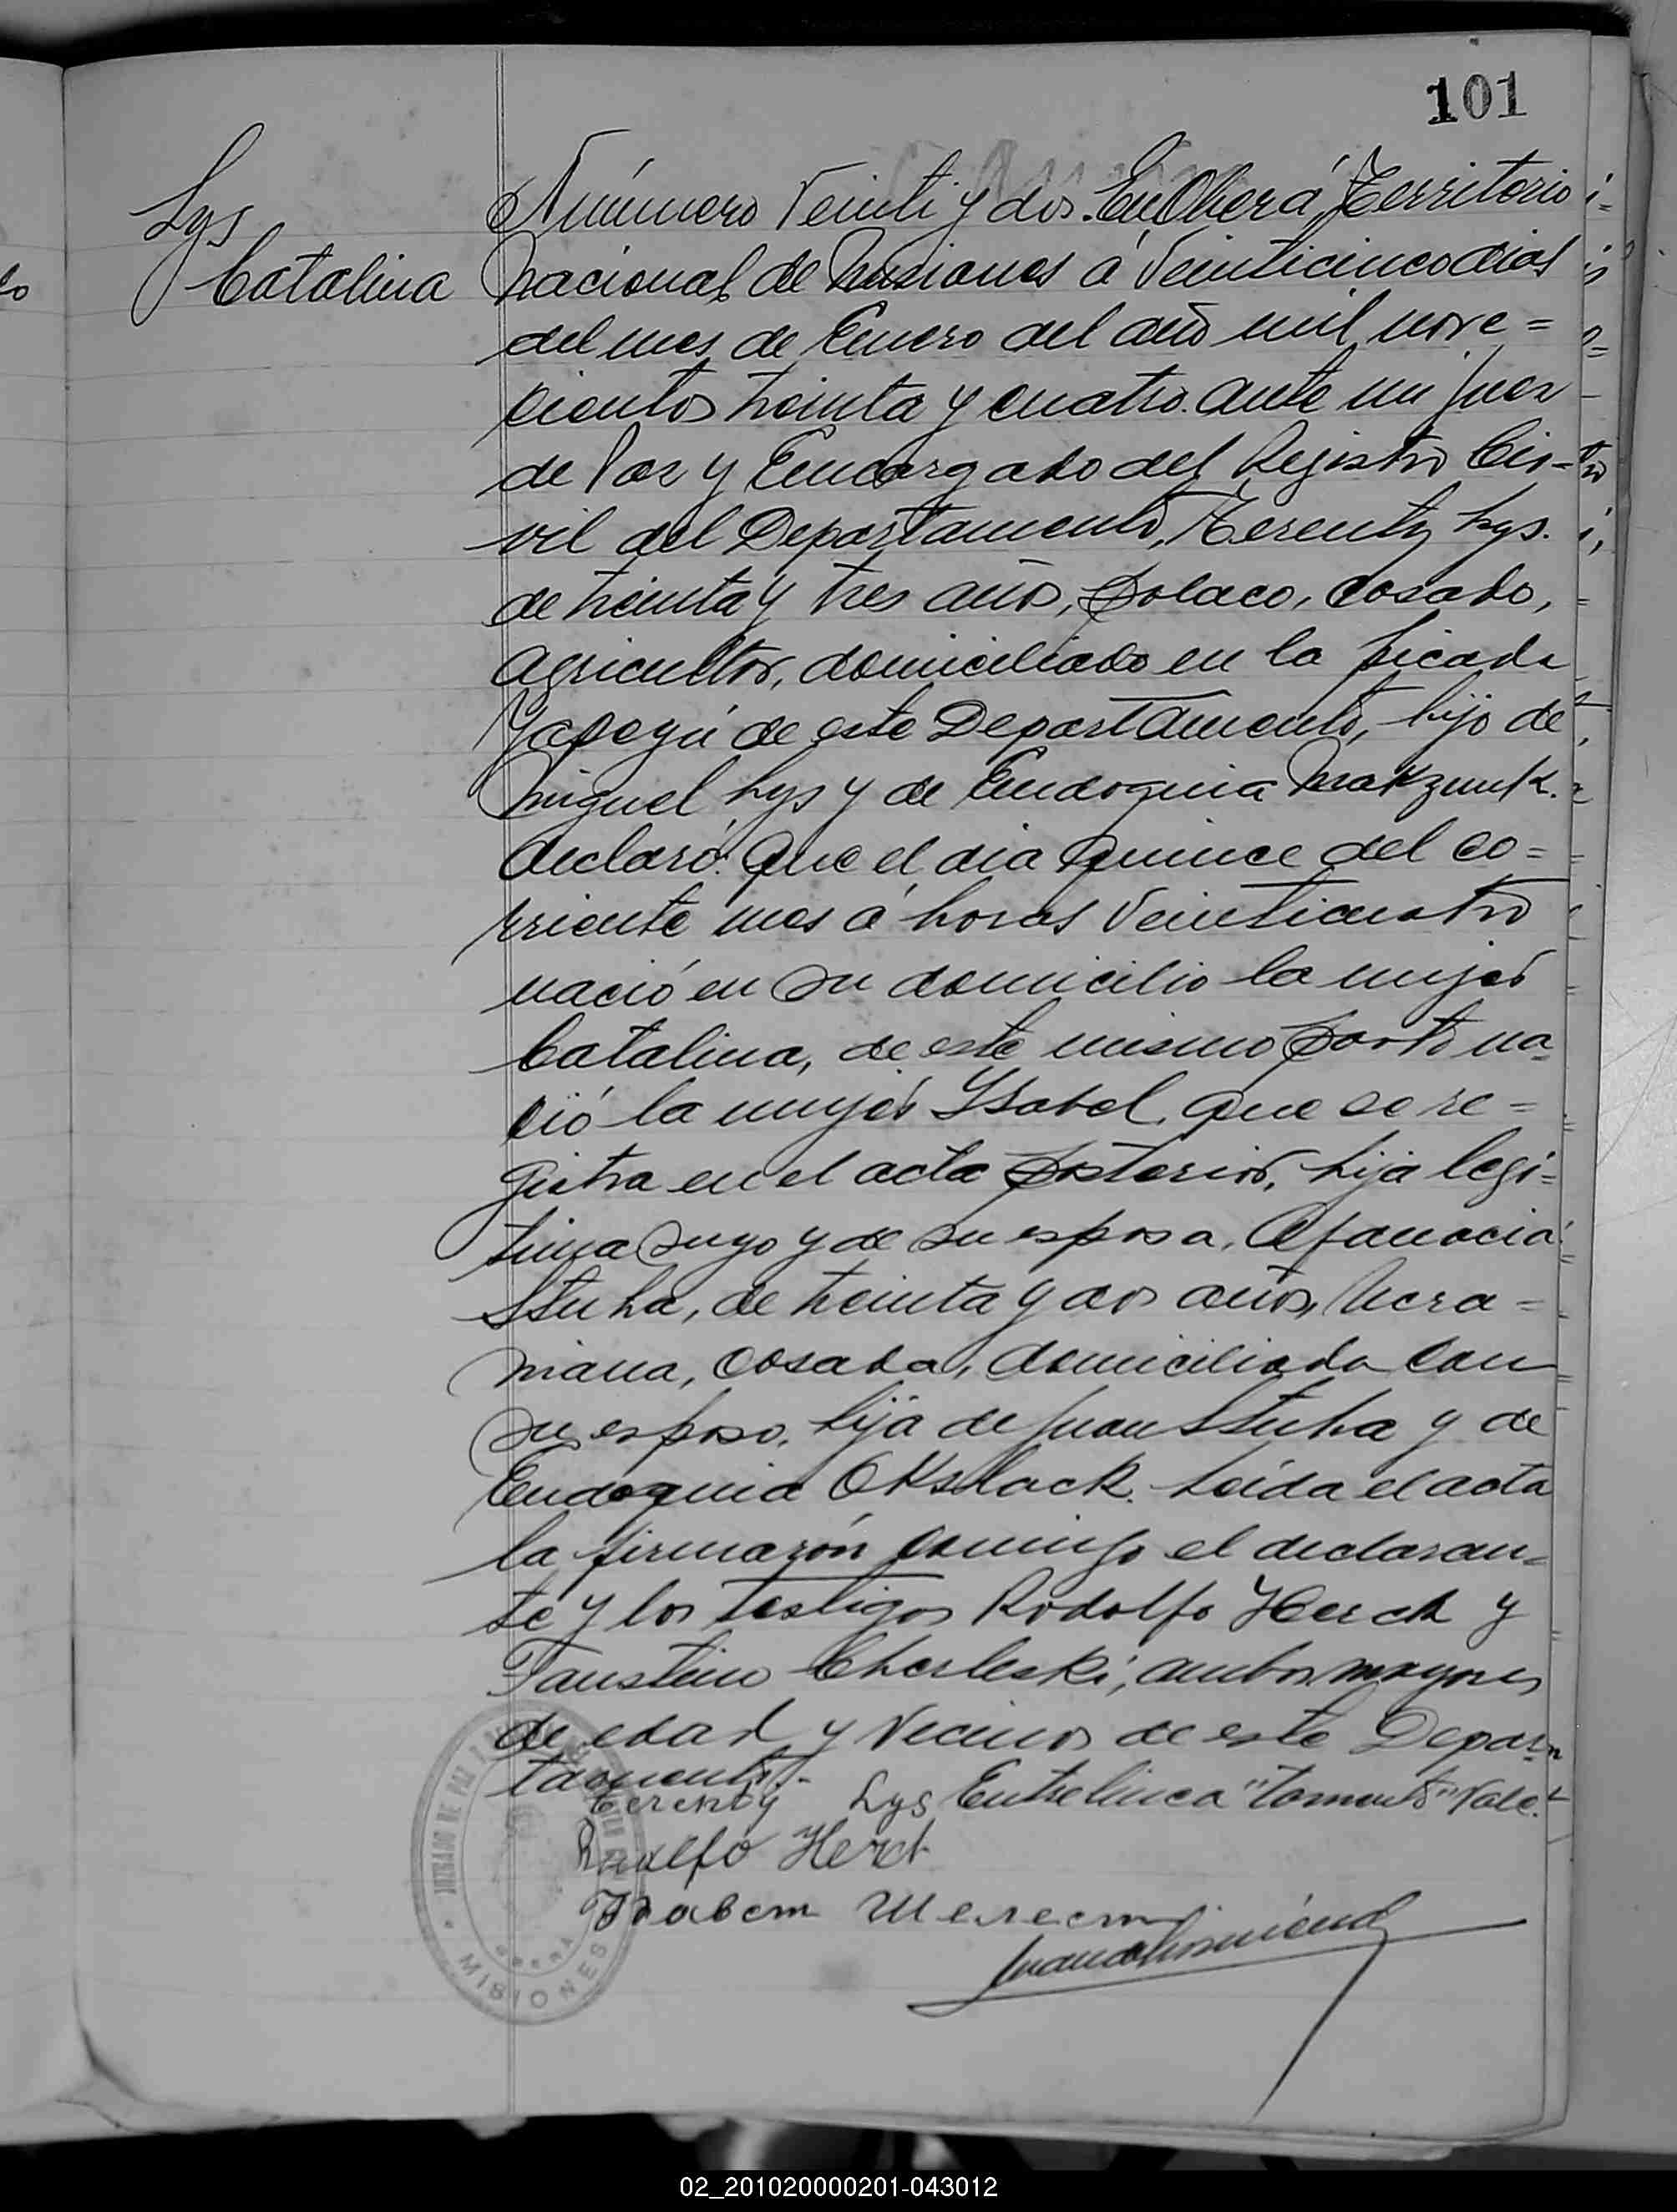 101
Lys
Catalina
Número Veinti y dos. En Oberá, Territorio
Nacional de Misiones á Veinticinco dias
del mes de Enero del año mil nove=
cientos treinta y cuatro. ante mi Juez
de Paz y Encargado del Registro Ci=
vil del Departamento, Terenty Lys.
de treinta y tres años, polaco, casado,
agricultor, domiciliado en la picada
Yapeyú de este Departamento, hijo de
Miguel Lys y de Eudoquia
declaró: Que el dia quince del co=
rriente mes á horas Veinticuatro
nació en su domicilio la mujer
Catalina, de este mismo parto na=
ció la mujer Ysabel, que se re=
gistra en el acta posterior, hija legi=
tima suya y de su esposa, Afanacia
Stuha, de treinta y dos años, Ucra=
niana, casada, domiciliada con
su esposo, hija de Juan Stuha y de
Eudoquia Okslack. Leída el acta
la firmarón conmigo el declaran=
te y los testigos Rodolfo Herch y
Faustino Cherleski, ambos mayores
de edad y Vecinos de este Depar=
tamento.-
Terenty Lys Entrelinea "tamento" Vale.
Rudolfo Herch
JUZGADO DE PAZ
OBERÁ
MISIONES
02_201020000201-043012